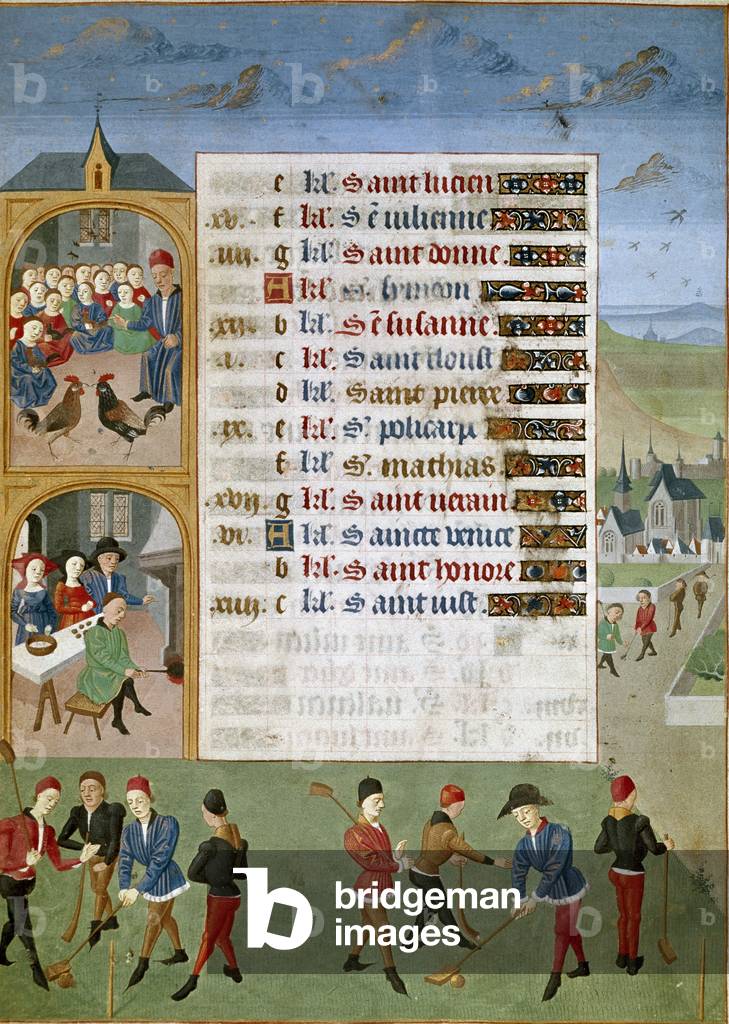 e kl' Saint lucien
.xv. f kl' S e iulienne
.iiii. g kl' Saint donne.
A kl' S. hyncon
.xii. b kl' S e susanne.
.i. c kl' Saint cloust
d kl' Saint pierre
.ix. e kl' S. policarpe
f kl' S. mathias.
.xvii. g kl' Saint uerain.
.vi. A kl' Saincte venice
b kl' Saint honore
.xiiii. c kl' Saint iust.
b bridgeman images